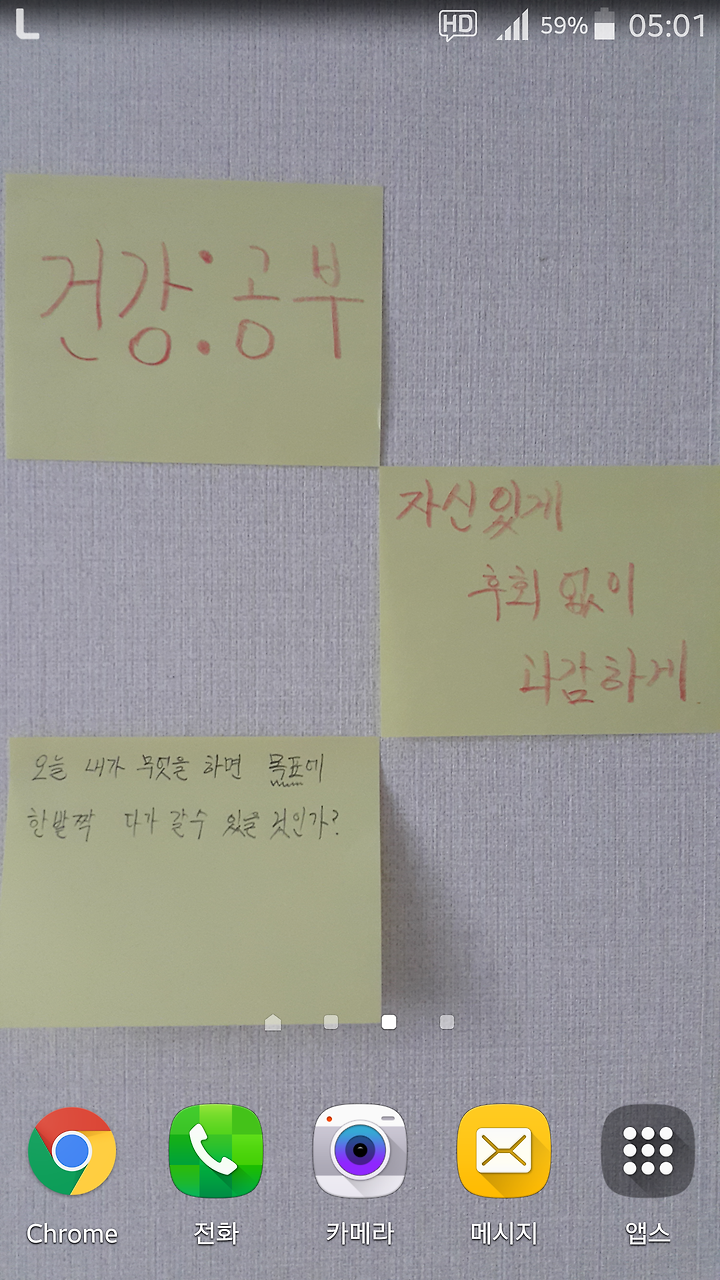 L HD 59% 05:01
건강:공부
자신있게
후회 없이
과감하게
오늘 내가 무엇을 하면 목표에
한발짝 다가 갈수 있을 것인가?
Chrome 전화 카메라 메시지 앱스